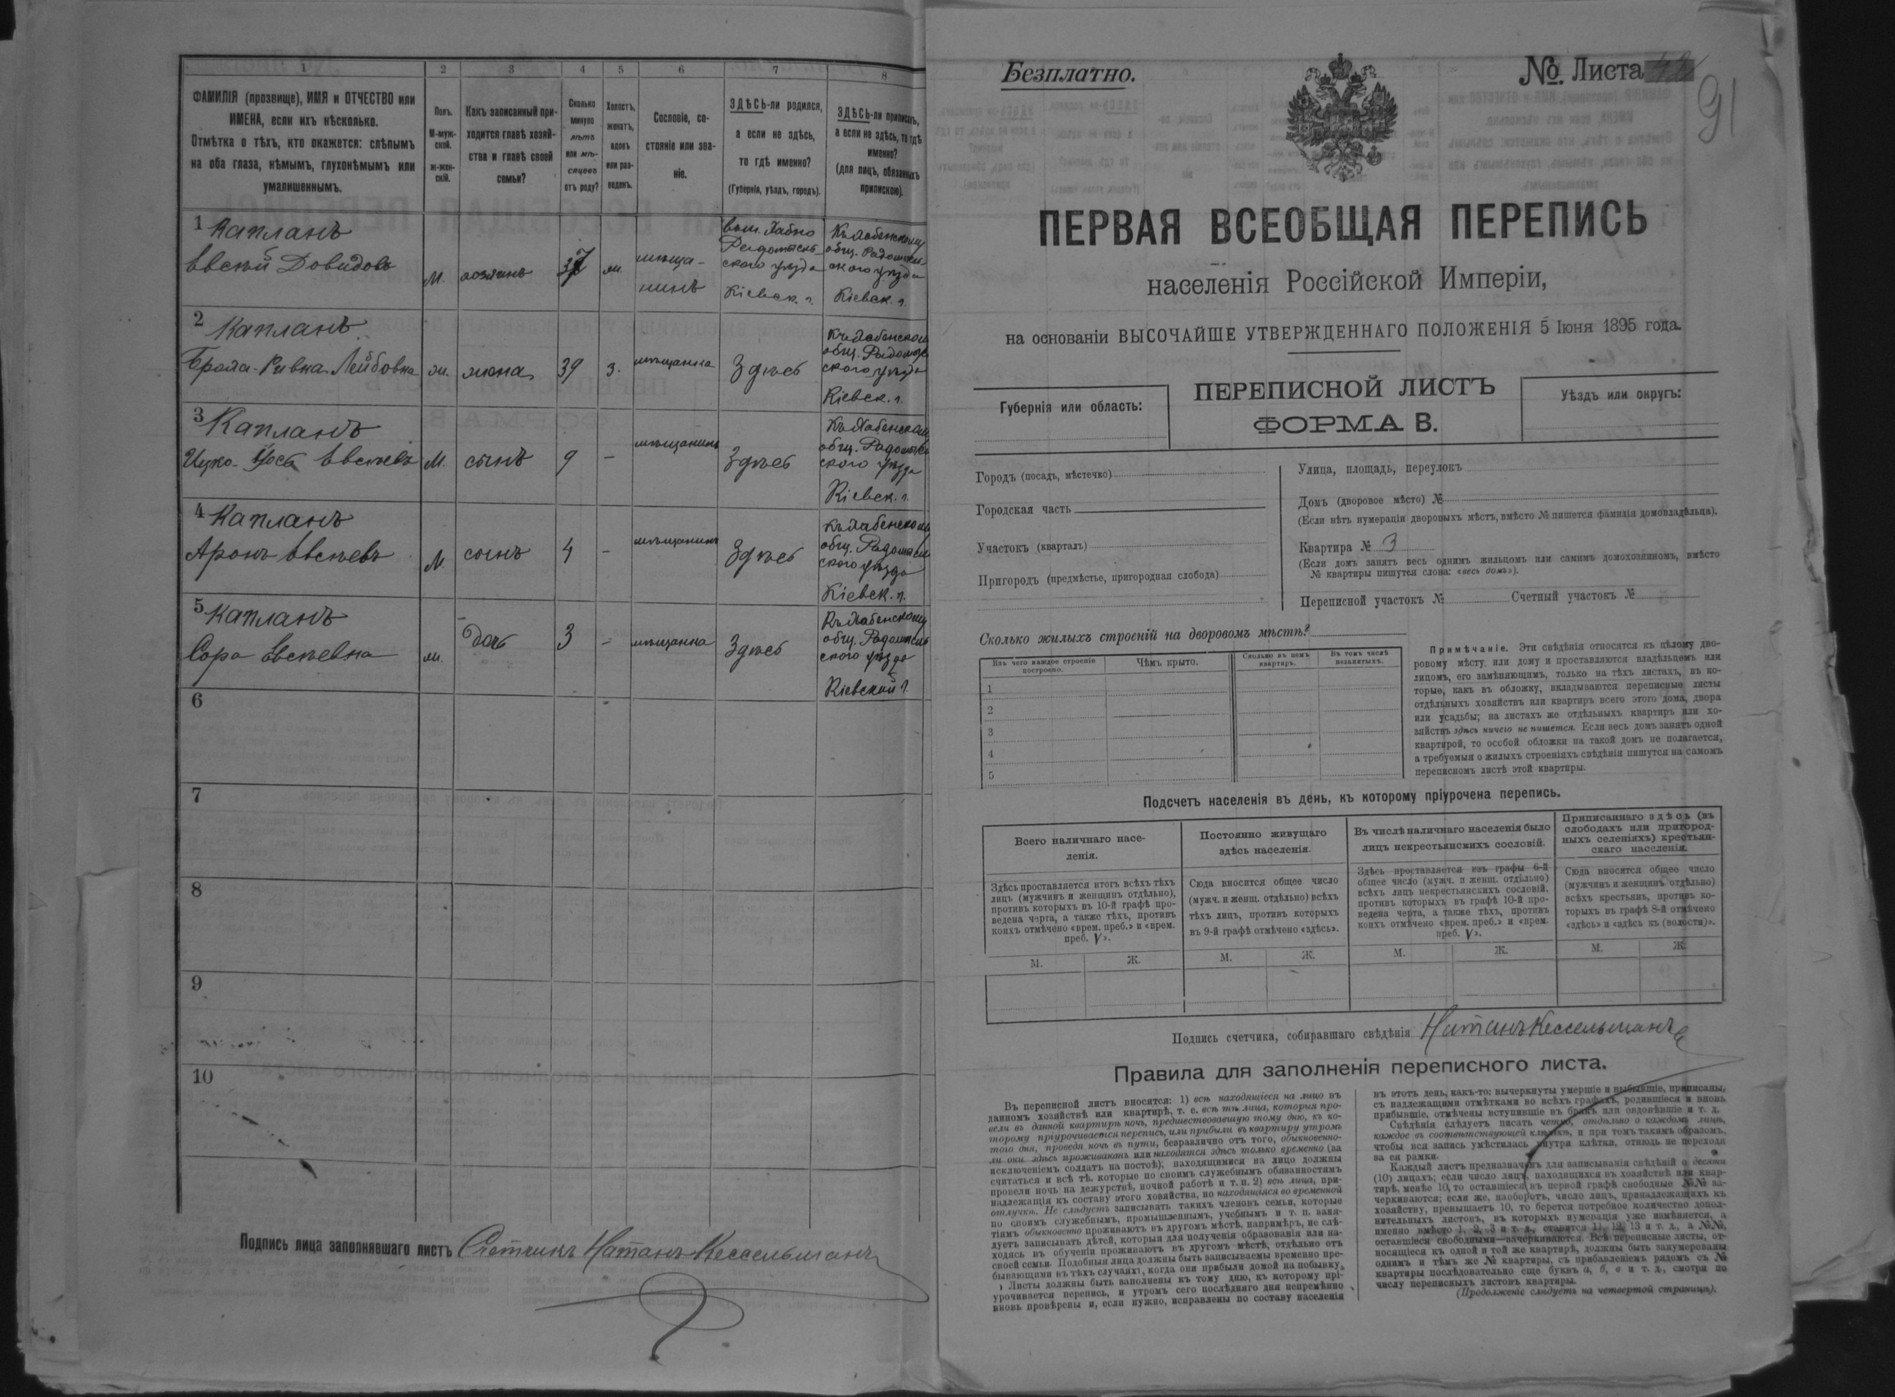 1 2 3 4 5 6 7 8
ФАМИЛІЯ (прозвище), ИМЯ и ОТЧЕСТВО или
ИМЕНА, если ихъ нѣсколько.
Отмѣтка о тѣхъ, кто окажется: слѣпымъ
на оба глаза, нѣмымъ, глухонѣмымъ или
умалишеннымъ.
Полъ.
М-муж-
ской.
ж-жен-
скій.
Какъ записанный при-
ходится главѣ хозяй-
ства и главѣ своей
семьи?
Сколько
минуло
лѣтъ
или мѣ-
сяцевъ
отъ роду?
Холостъ,
женатъ,
вдовъ
или раз-
веденъ.
Сословіе, со-
стояніе или зва-
ніе.
ЗДѢСЬ-ли родился,
а если не здѣсь,
то гдѣ именно?
(Губернія, уѣздъ, городъ).
ЗДѢСЬ-ли приписанъ,
а если не здѣсь, то гдѣ
именно?
(для лицъ, обязанныхъ
припискою).
1 Капланъ
Евсѣй Довидовъ
м.
хозяинъ
37
мѣща-
нинъ
Радомысль-
скаго уѣзда
Кіевск. г.
Къ Хабенскому
общ. Радомысль
скаго уѣзда
Кіевск. г.
2 Капланъ
Ривка Лейбовна
жена
39
з.
мѣщанка
Здѣсь
Къ Хабенскому
общ. Радомысль
скаго уѣзда
Кіевск. г.
3 Капланъ
Ицко- Евсѣевъ
м.
сынъ
9
–
мѣщанинъ
Здѣсь
Къ Хабенскому
общ. Радомысль
скаго уѣзда
Кіевск. г.
4 Капланъ
Аронъ Евсѣевъ
м
сынъ
4
–
мѣщанинъ
Здѣсь
Къ Хабенскому
общ. Радомысль
скаго уѣзда
Кіевск. г.
5 Капланъ
Сора Евсѣевна
дочь
3
–
мѣщанка
Здѣсь
Къ Хабенскому
общ. Радомысль
скаго уѣзда
Кіевской г.
6
7
8
9
10
Подпись лица заполнявшаго листъ Счетчикъ Натанъ Кессельманъ
Безплатно.
№ Листа
91
ПЕРВАЯ ВСЕОБЩАЯ ПЕРЕПИСЬ
населенія Россійской Имперіи,
на основаніи ВЫСОЧАЙШЕ УТВЕРЖДЕННАГО ПОЛОЖЕНІЯ 5 Іюня 1895 года.
Губернія или область:
ПЕРЕПИСНОЙ ЛИСТЪ
ФОРМА В.
Уѣздъ или округъ:
Городъ (посадъ, мѣстечко)
Городская часть
Участокъ (кварталъ)
Пригородъ (предмѣстье, пригородная слобода)
Улица, площадь, переулокъ
Домъ (дворовое мѣсто) №
(Если нѣтъ нумераціи дворовыхъ мѣстъ, вмѣсто № пишется фамилія домовладѣльца).
Квартира № 3
(Если домъ занятъ весь однимъ жильцомъ или самимъ домохозяиномъ, вмѣсто
№ квартиры пишутся слова: «весь домъ»).
Переписной участокъ № Счетный участокъ №
Сколько жилыхъ строеній на дворовомъ мѣстѣ?
Изъ чего каждое строеніе
построено.
Чѣмъ крыто.
Сколько въ немъ
квартиръ.
Въ томъ числѣ
незанятыхъ.
1
2
3
4
5
Примѣчаніе. Эти свѣдѣнія относятся къ цѣлому дво-
ровому мѣсту или дому и проставляются владѣльцемъ или
лицомъ, его замѣняющимъ, только на тѣхъ листахъ, въ ко-
торые, какъ въ обложку, вкладываются переписные листы
отдѣльныхъ хозяйствъ или квартиръ всего этого дома, двора
или усадьбы; на листахъ же отдѣльныхъ квартиръ или хо-
зяйствъ здѣсь ничего не пишется. Если весь домъ занятъ одной
квартирой, то особой обложки на такой домъ не полагается,
а требуемыя о жилыхъ строеніяхъ свѣдѣнія пишутся на самомъ
переписномъ листѣ этой квартиры.
Подсчетъ населенія въ день, къ которому пріурочена перепись.
Всего наличнаго насе-
ленія.
Постоянно живущаго
здѣсь населенія.
Въ числѣ наличнаго населенія было
лицъ некрестьянскихъ сословій.
Приписаннаго здѣсь (въ
слободахъ или пригород-
ныхъ селеніяхъ) крестьян-
скаго населенія.
Здѣсь проставляется итогъ всѣхъ тѣхъ
лицъ (мужчинъ и женщинъ отдѣльно),
противъ которыхъ въ 10-й графѣ про-
ведена черта, а также тѣхъ, противъ
коихъ отмѣчено «врем. преб.» и «врем.
преб. V».
Сюда вносится общее число
(мужч. и женщ. отдѣльно) всѣхъ
тѣхъ лицъ, противъ которыхъ
въ 9-й графѣ отмѣчено «здѣсь».
Здѣсь проставляется изъ графы 6-й
общее число (мужч. и женщ. отдѣльно)
всѣхъ лицъ некрестьянскихъ сословій,
противъ которыхъ въ графѣ 10-й про-
ведена черта, а также тѣхъ, противъ
коихъ отмѣчено «врем. преб.» и «врем.
преб. V».
Сюда вносится общее число
(мужчинъ и женщинъ отдѣльно)
всѣхъ крестьянъ, противъ ко-
торыхъ въ графѣ 8-й отмѣчено
«здѣсь» и «здѣсь къ (волости)».
М. Ж. М. Ж. М. Ж. М. Ж.
Подпись счетчика, собиравшаго свѣдѣнія Натанъ Кессельманъ
Правила для заполненія переписного листа.
Въ переписной листъ вносятся: 1) всѣ находящіеся на лицо въ
данномъ хозяйствѣ или квартирѣ, т. е. всѣ тѣ лица, которыя про-
вели въ данной квартирѣ ночь, предшествовавшую тому дню, къ ко-
торому пріурочивается перепись, или прибыли въ квартиру утромъ
того дня, проведя ночь въ пути, безразлично отъ того, обыкновенно-
ли они здѣсь проживаютъ или находятся здѣсь только временно (за
исключеніемъ солдатъ на постоѣ); находящимися на лицо должны
считаться и всѣ тѣ, которые по своимъ служебнымъ обязанностямъ
провели ночь на дежурствѣ, ночной работѣ и т. п. 2) всѣ лица, при-
надлежащія къ составу этого хозяйства, но находящіяся во временной
отлучкѣ. Не слѣдуетъ записывать такихъ членовъ семьи, которые
по своимъ служебнымъ, промышленнымъ, учебнымъ и т. п. заня-
тіямъ обыкновенно проживаютъ въ другомъ мѣстѣ, напримѣръ, не слѣ-
дуетъ записывать дѣтей, которыя для полученія образованія или на-
ходясь въ обученіи проживаютъ въ другомъ мѣстѣ, отдѣльно отъ
своей семьи. Подобныя лица должны быть записываемы временно пре-
бывающими въ тѣхъ случаяхъ, когда они прибыли домой на побывку.
Листы должны быть заполнены къ тому дню, къ которому прі-
урочивается перепись, и утромъ сего послѣдняго дня непремѣнно
вновь провѣрены и, если нужно, исправлены по составу населенія
въ этотъ день, какъ-то: вычеркнуты умершіе и выбывшіе, приписаны,
съ надлежащими отмѣтками во всѣхъ графахъ, родившіеся и вновь
прибывшіе, отмѣчены вступившіе въ бракъ или овдовѣвшіе и т. д.
Свѣдѣнія слѣдуетъ писать четко, отдѣльно о каждомъ лицѣ,
каждое въ соотвѣтствующей клѣткѣ, и при томъ такимъ образомъ,
чтобы вся запись умѣстилась внутри клѣтки, отнюдь не переходя
за ея рамки.
Каждый листъ предназначенъ для записыванія свѣдѣній о десяти
(10) лицахъ; если число лицъ, находящихся въ хозяйствѣ или квар-
тирѣ, менѣе 10, то оставшіеся въ первой графѣ свободные №№ за-
черкиваются; если же, наоборотъ, число лицъ, принадлежащихъ къ
хозяйству, превышаетъ 10, то берется потребное количество допол-
нительныхъ листовъ, въ которыхъ нумерація уже измѣняется, а
именно вмѣсто 1, 2, 3 и т. д., ставится 11, 12, 13 и т. д., а №№,
оставшіеся свободными—зачеркиваются. Всѣ переписные листы, от-
носящіеся къ одной и той же квартирѣ, должны быть занумерованы
однимъ и тѣмъ же № квартиры, съ прибавленіемъ рядомъ съ №
квартиры послѣдовательно еще буквъ а, б, в и т. д., смотря по
числу переписныхъ листовъ квартиры.
(Продолженіе слѣдуетъ на четвертой страницѣ).